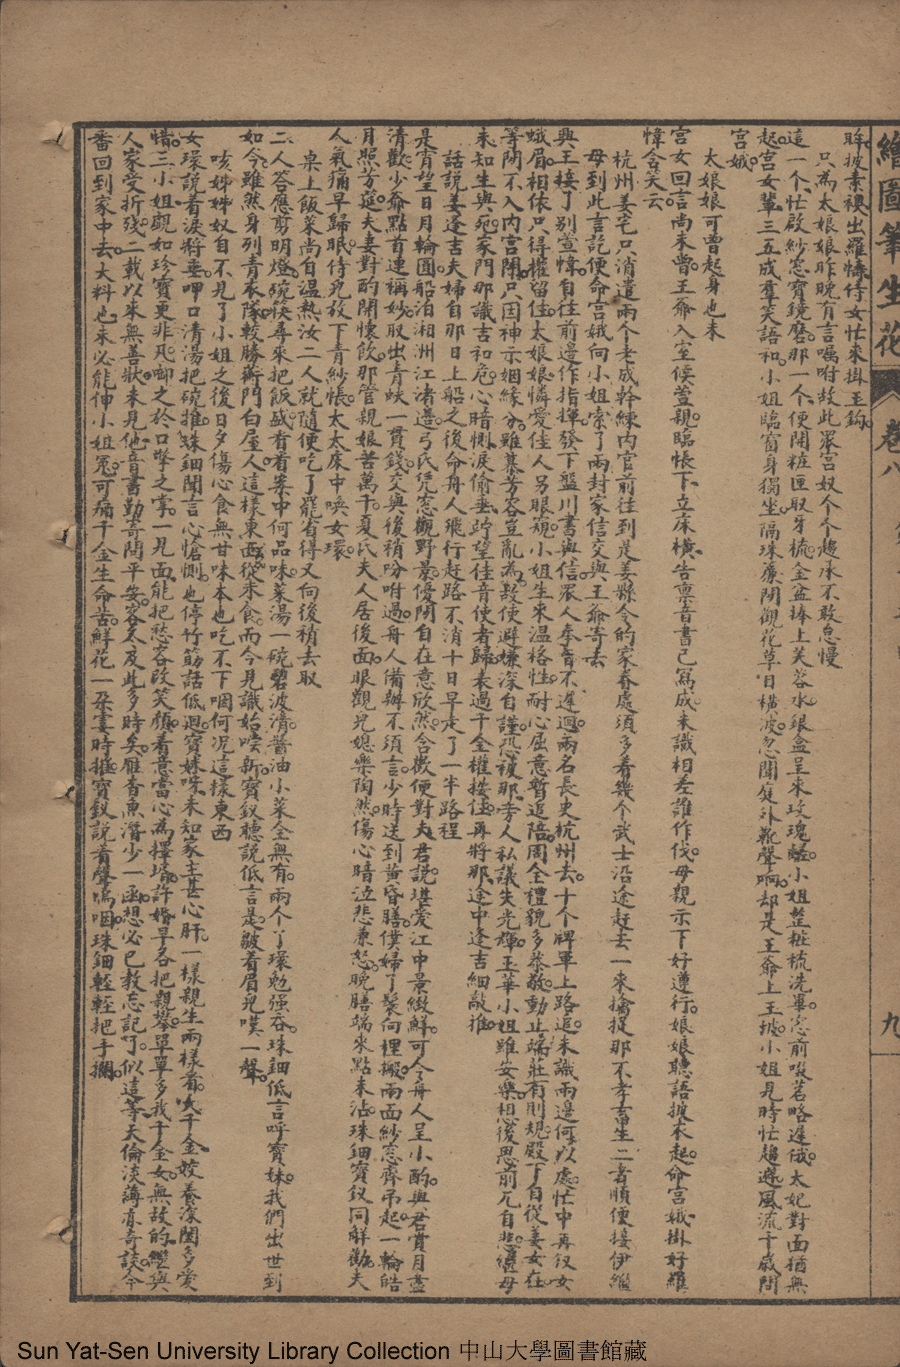 繪圖筆生花 卷八 九
眸披素襖出羅幃侍女忙來掛玉鈎
只為太娘娘昨晚有言囑咐故此眾宮奴个个趨承不敢怠慢
這一个忙啟紗窓寳鏡磨那一个便開粧匣取牙梳金盆捧上芙蓉水銀盒呈來玫瑰小姐整粧梳洗畢窓前啜茗略遲俄太妃對面猶無
起宮女輩三五成羣笑語和小姐臨窗身獨坐隔珠簾閒觀花草日橫波忽聞庭外靴聲响却是王爺上玉坡小姐見時忙趨避風流千歲問
宮娥
太娘娘可曾起身也未
宮女回言尚未曾王爺入室候萱親臨帳下立床橫告禀音書已寫成未識相差誰作伐母親示下好遵行娘娘聽語披衣起命宮娥掛好羅
幃含笑云
杭州姜宅只消遣兩个老成幹練內官前往到是姜縣令的家眷處須多着幾个武士沿途赶去一來擒捉那不孝畜生二者順便接伊繼
母到此言訖便命宮娥向小姐索了兩封家信交與王爺寄去
興王接了別萱幃自往前邊作指揮發下盤川書與信眾人奉旨不遲迴兩名長史杭州去十个牌軍上路追未識兩邊何以處忙中再叙女
蛾眉相依只得權留住太娘娘憐愛佳人另眼窺小姐生來溫格性耐心屈意暫追陪周全禮貌多恭敬動止端莊有則規殿下自從姜女在
等閒不入內宮闈只因神示姻緣分雖慕芳容豈亂為致使避嫌深自謹恐被那旁人私議失光輝玉華小姐雖安樂想後思前兀自悲繼母
未知生與死家門那識吉和危心暗惻淚偷垂跨望佳音使者歸未過千金權按住再將那途中逢吉細敲推
話說姜逢吉夫婦自那日上船之後命舟人飛行赶路不消十日早走了一半路程
是宵望日月輪圓船泊湘洲江渚邊弓氏凭窓觀野景優閒自在意欣然含微便對夫君說堪愛江中景緻鮮可令舟人呈小酌與君賞月盡
清歡少爺點首連稱妙取出青蚨一貫錢交與後稍吩咐過舟人備辦不須言少時送到黃昏膳僕婦丫鬟向裡搬兩面紗窓齊吊起一輪皓
月照芳筵夫妻對酌開懷飲那管親娘苦萬千夏氏夫人居後面眼觀兒媳樂陶然傷心暗泣悲兼恕晚膳端來點未沾珠鈿寳釵同解勸夫
人氣痛早歸眠侍兒放下青紗帳太太床中喚女環
桌上飯菜尚自溫熱汝二人就隨便吃了罷省得又向後稍去取
二人答應剪明燈碗筷尋來把飯盛看看案中何品味菜湯一碗碧波清醬油小菜全無有兩个丫環勉强吞珠鈿低言呼寳妹我們出世到
如今雖然身列青衣隊較勝衡門白屋人這樣東西從未食而今見識始嘗新寳釵聽說低言是皺着眉兒嘆一聲
咳姊姊奴自不見了小姐之後日夕傷心食無甘味本也吃不下咽何況這樣東西
女環說着淚將垂呷口清湯把碗推珠鈿聞言心愴惻也停竹筯話低迴寳妹呀未知家主甚心肝一樣親生兩樣看大千金姣養深閨多愛
惜三小姐觀如珍寳更非凡啣之於口擎之掌一見面能把愁容改笑顏着意當心為擇壻許婚早各把親攀單單多我千金女無故的繼與
人家受折殘二載以來無善狀未見他音書勤寄問平安客久度此多時矣雁杳魚潛少一函想必已教忘記了似這等天倫淡薄真奇談今
番回到家中去大料也未必能伸小姐冤可痛千金生命苦鮮花一朵霎時摧寳釵說着聲嗚咽珠鈿輕輕把手攔
Sun Yat-Sen University Library Collection 中山大學圖書館藏